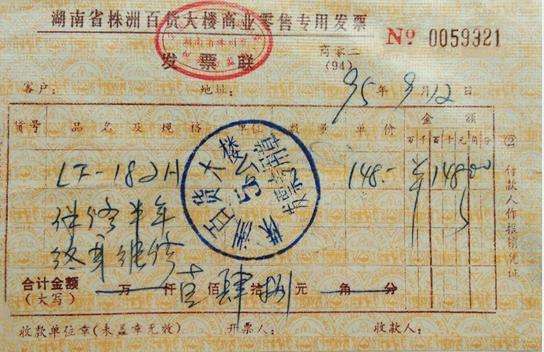 湖南省株洲百货大楼商业零售专用发票
发票联
商零二
(94)
No 0059321
客户: 地址: 95年9月12日
货号 品名及规格 单位 数量 单价 金额
万千百十元角分
LT-182H 148.- ¥14800
保修半年
终身维修
合计金额
(大写) 万仟壹佰肆拾捌元角分
收款单位章(未盖章无效) 开票人: 收款人:
付款人作报销凭证
株洲百货大楼